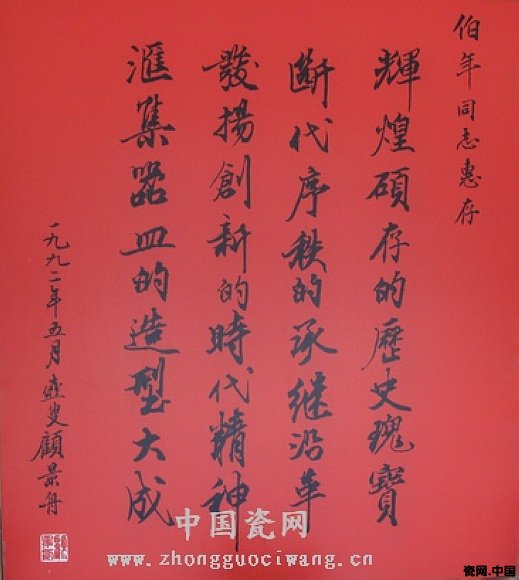 伯年同志惠存
輝煌碩存的歷史瑰寶
断代序秩的承继沿革
發揚創新的時代精神
滙集器皿的造型大成
一九九二年五月壶叟顧景舟
中国瓷网
www.zhongguociwang.cn
瓷网.中国